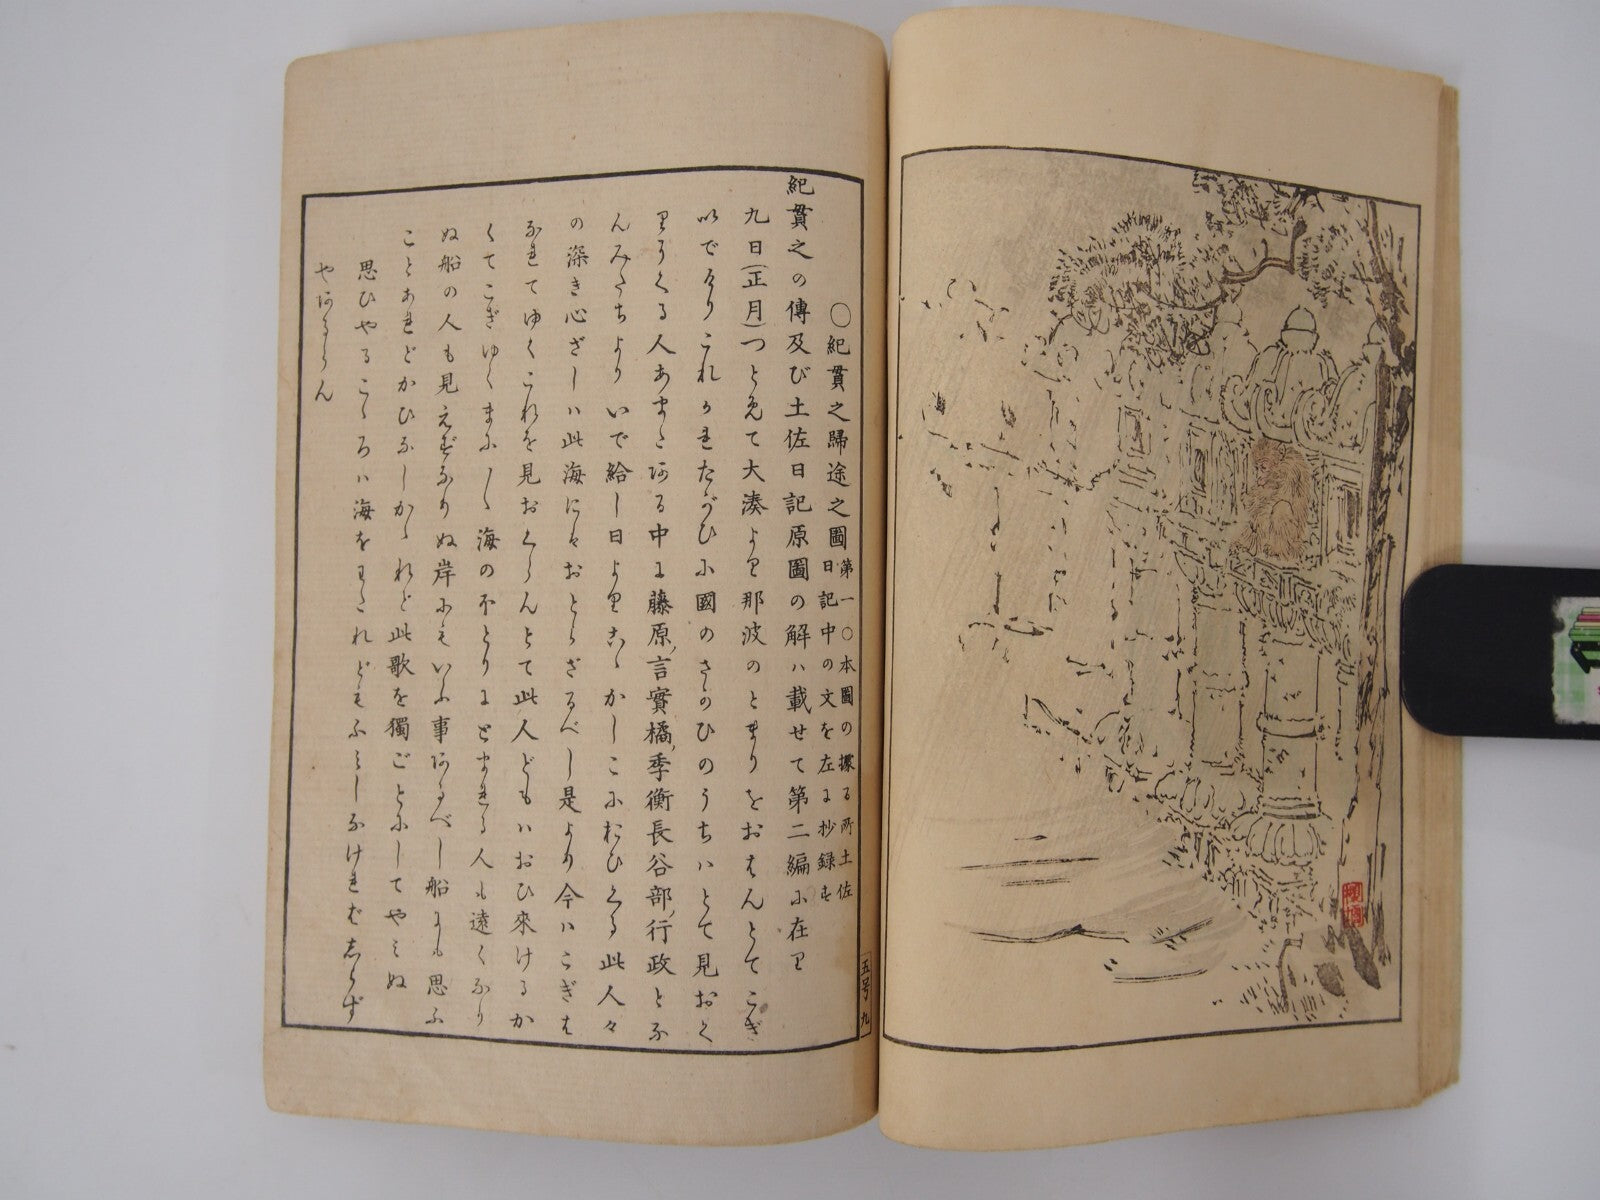 ○紀貫之歸途之圖 第一○本圖の據る所土佐
日記中の文を左に抄録す
紀貫之の傳及び土佐日記原圖の解ハ載せて第二編に在り
九日(正月)つとめて大湊より那波のとまりをおはんとてこぎ
いでけりこれかれたがひに國のさかひのうちハとて見おく
りにくる人あまたある中に藤原、言實橘、季衡長谷部、行政とな
んみたちよりいで給し日よりこゝかしこにおひくる此人々
の深き心ざしハ此海にもおとらざるべし是より今ハこぎは
なれてゆくこれを見おくらんとて此人どもハおひ來けるか
くてこぎゆくまに〳〵海のほとりにとまれる人も遠くなり
ぬ船の人も見えずなりぬ岸にもいふ事あるべし船にも思ふ
ことあれどかひなしかゝれど此歌を獨ごとにしてやみぬ
思ひやるこゝろハ海をわたれどもふみしなければしらず
やあるらん
五号 九